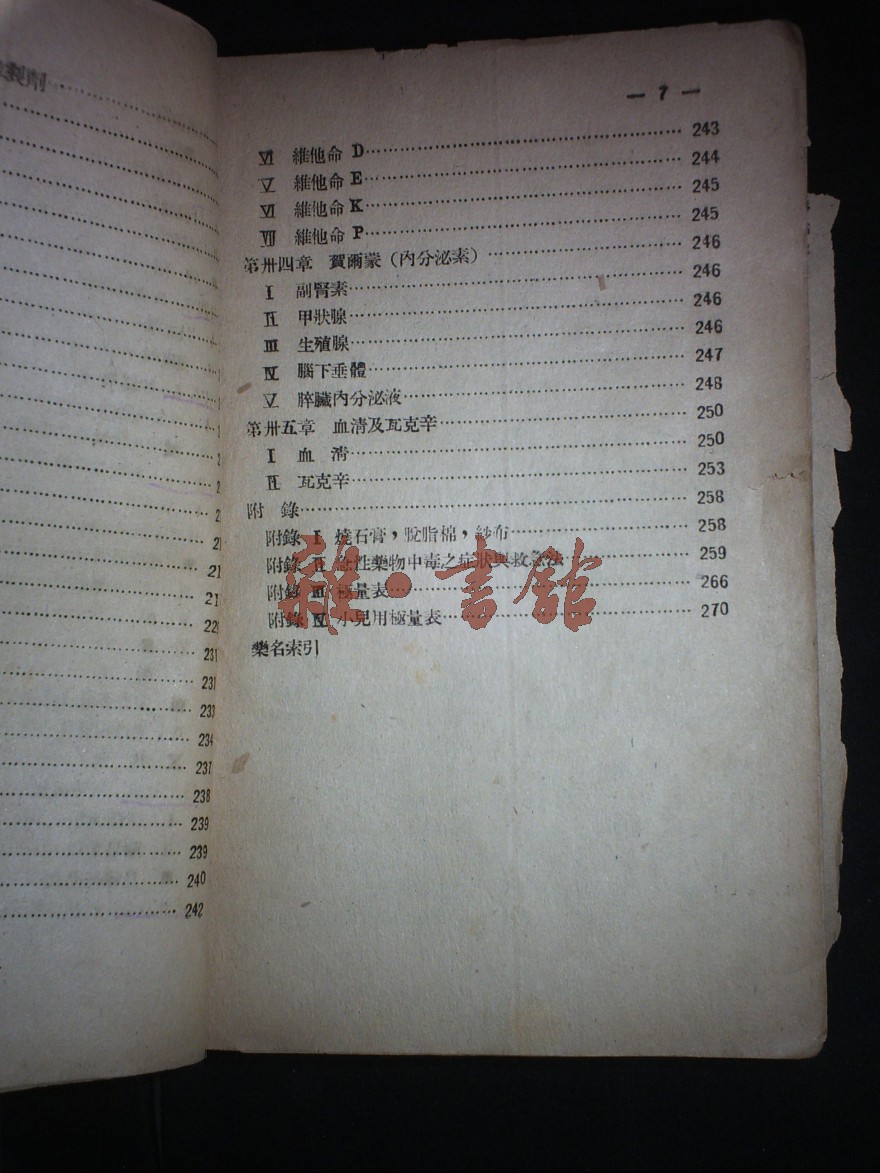 製劑
2
21
21
21
229
231
231
233
234
237
238
239
239
240
242
— 7 —
Ⅵ 維他命 D 243
Ⅴ 維他命 E 244
Ⅵ 維他命 K 245
Ⅶ 維他命 P 245
第卅四章 賀爾蒙（內分泌素） 246
Ⅰ 副腎素 246
Ⅱ 甲狀腺 246
Ⅲ 生殖腺 246
Ⅳ 腦下垂體 247
Ⅴ 脺臟內分泌液 248
第卅五章 血清及瓦克辛 250
Ⅰ 血清 250
Ⅱ 瓦克辛 253
附錄 258
附錄 Ⅰ 燒石膏，脫脂棉，紗布 258
附錄 Ⅱ 急性藥物中毒之症狀與救急法 259
附錄 Ⅲ 極量表 266
附錄 Ⅳ 小兒用極量表 270
藥名索引
雜·書館